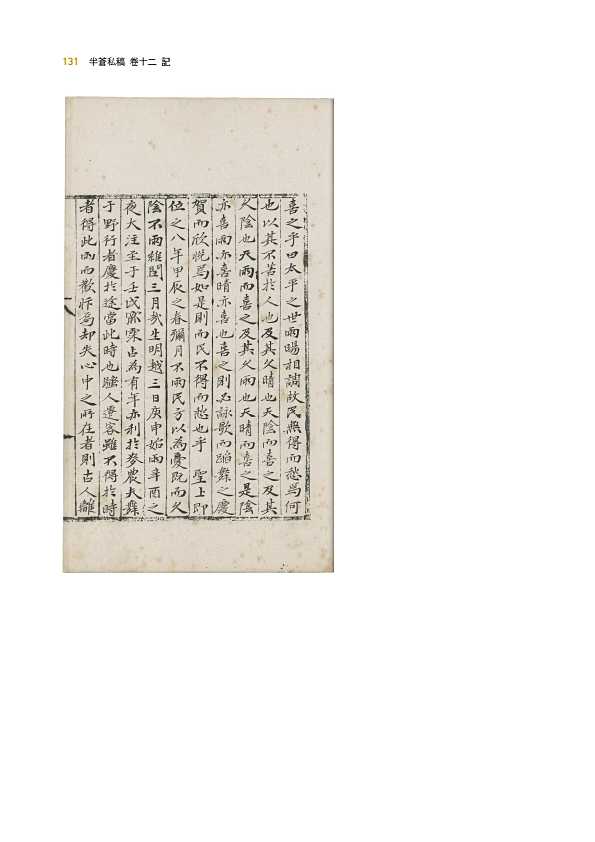 131 半蒼私稿 卷十二 記
喜之乎曰太平之世雨暘相調故民無得而愁焉何
也以其不苦於人也及其久晴也天陰而喜之及其
久陰也天雨而喜之及其久雨也天晴而喜之是陰
亦喜雨亦喜晴亦喜也喜之則必詠歌而蹈舞之慶
賀而欣悅焉如是則而民不得而愁也乎 聖上即
位之八年甲辰之春彌月不雨民方以為憂旣而久
陰不雨維閏三月哉生明越三日庚申始雨辛酉之
夜大注至于壬戌 粟占為有年亦利於麥農夫舞
于野行者慶於途當此時也騷人遷客雖不得於時
者得此雨而歡忭焉却失心中之所在者則古人雖